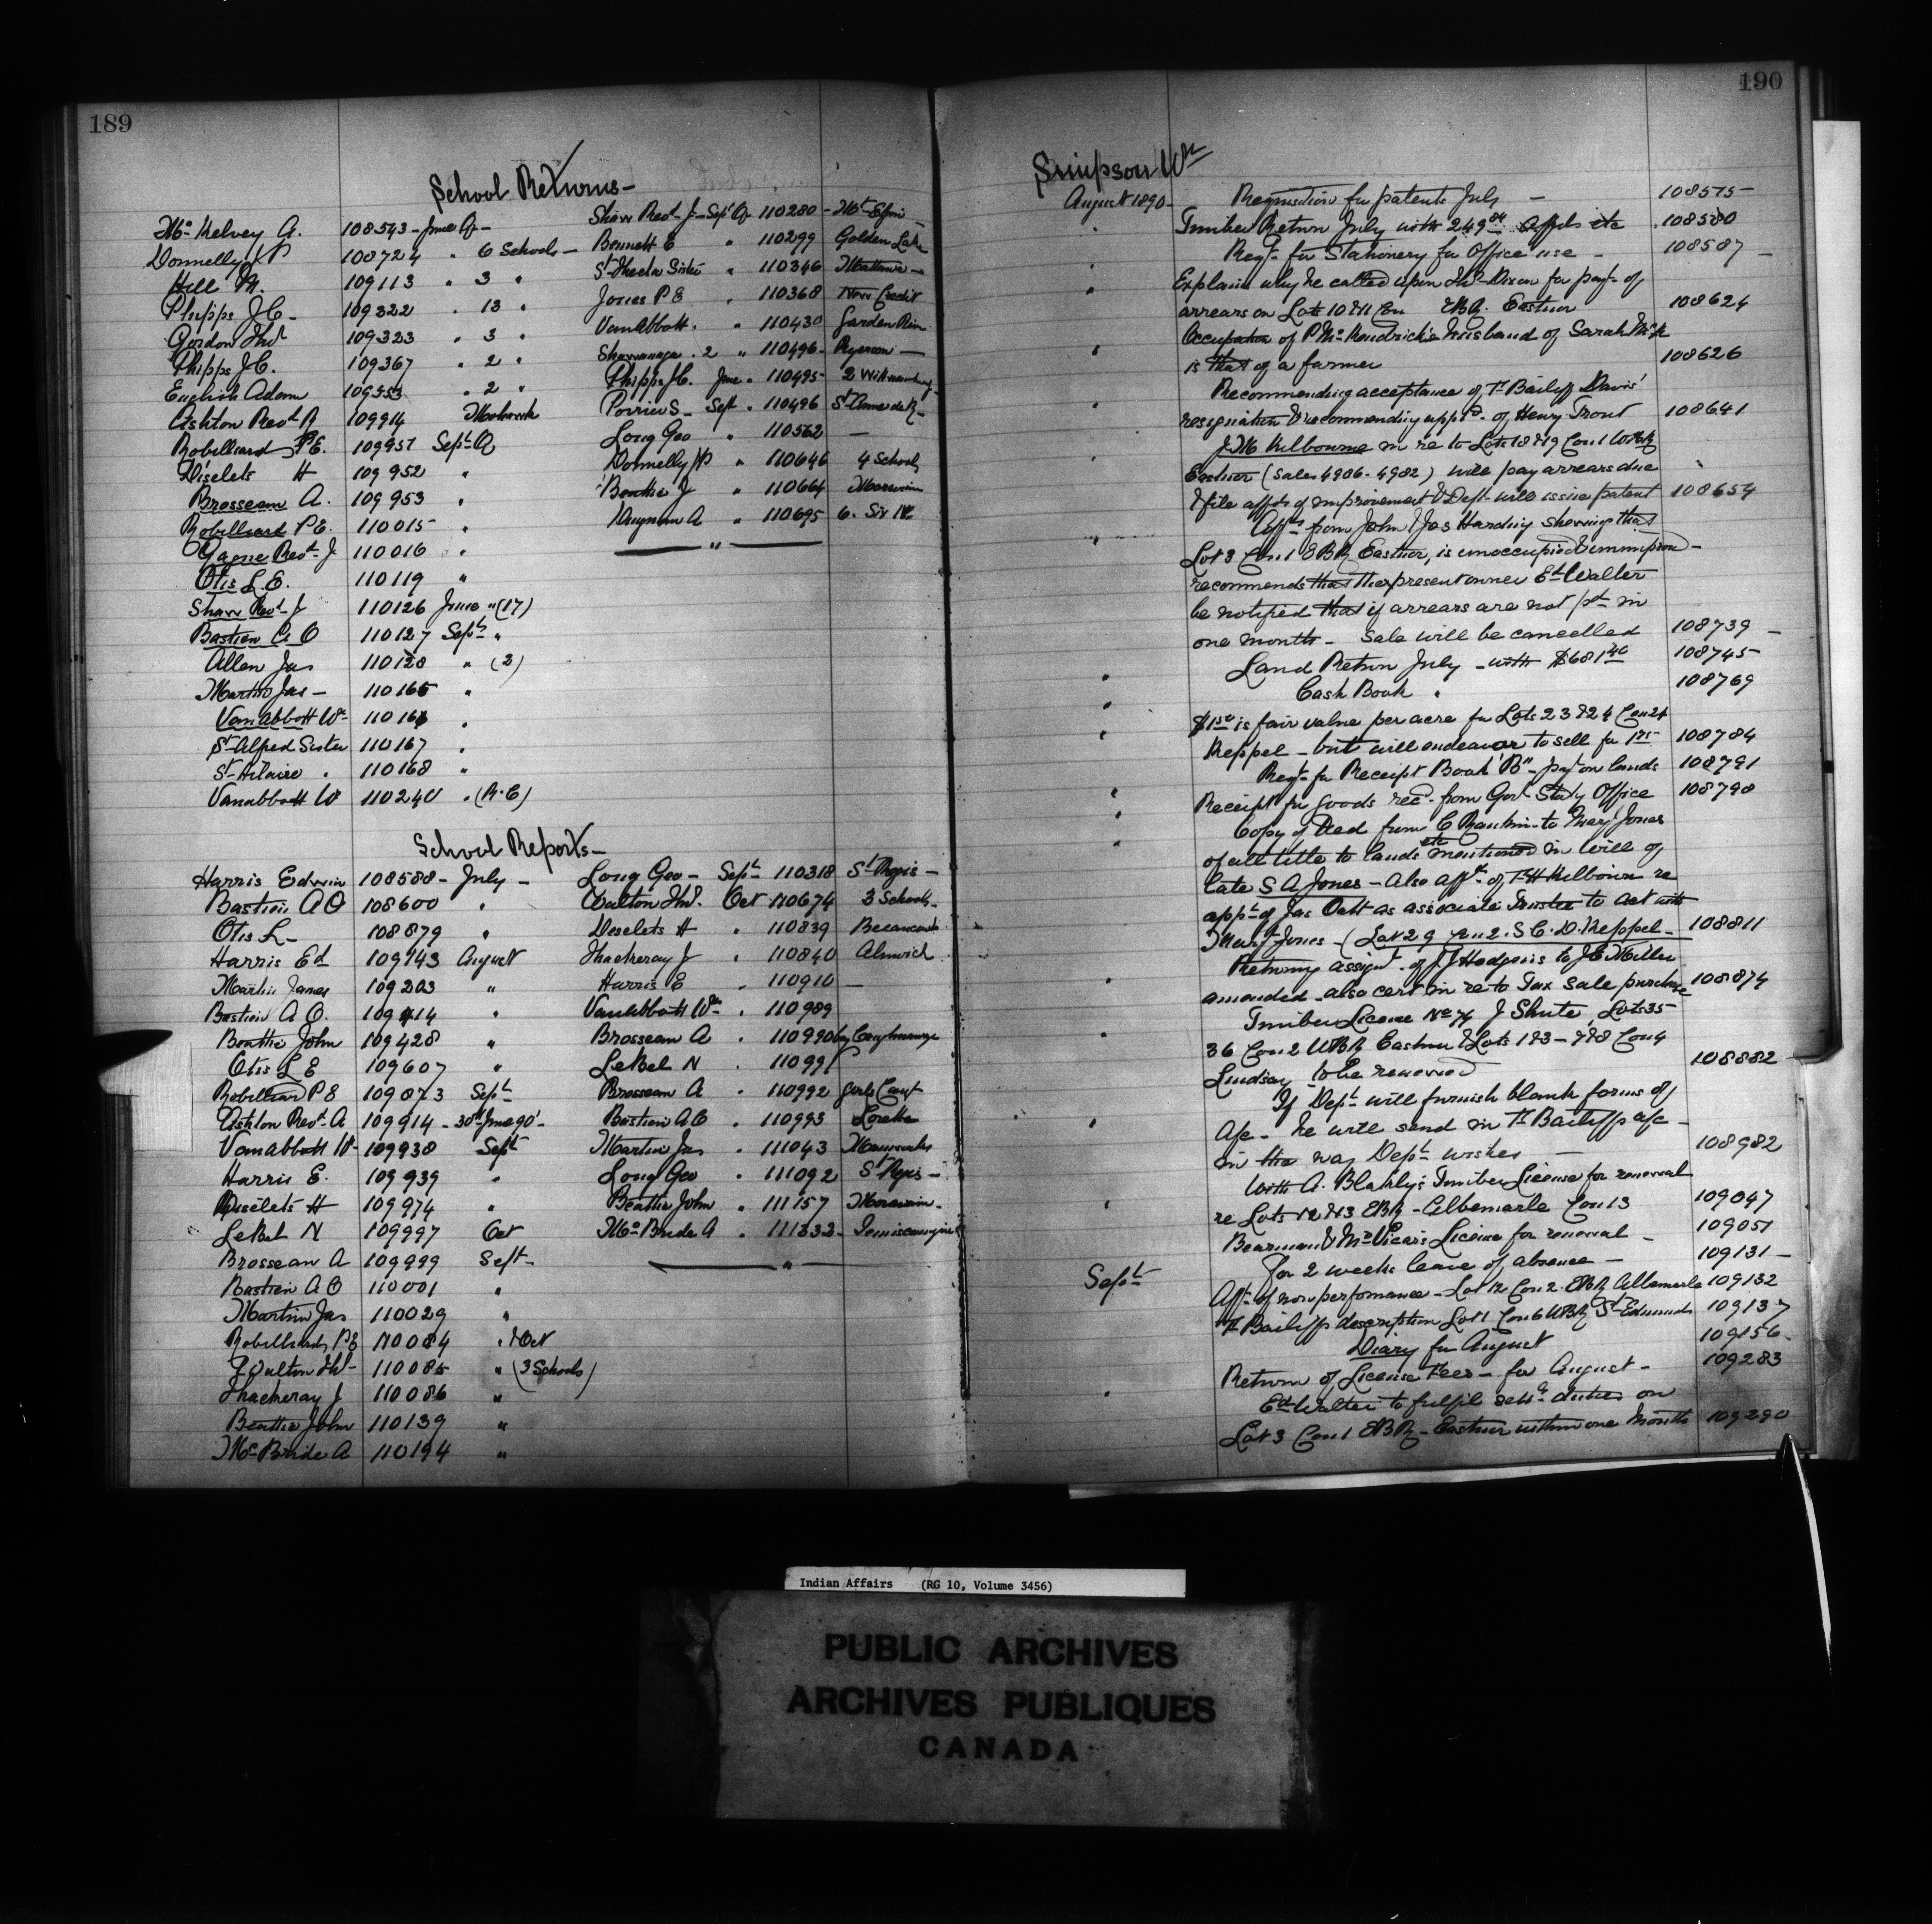 189
School Returns -
Mc Kelvey A. 108543 - June Qr -
Donnelly J P 108724 " 6 Schools -
Hill M. 109113 " 3 "
Phipps J.C. - 109322 " 13 "
Gordon Thos 109323 " 3 "
Phipps J.C. 109367 " 2 "
English Adam 109553 " 2 "
Ashton Revd R 109914 Mohawk
Robilliard P.E. 109951 Sept Q
Diselets H 109952 "
Brosseau A. 109953 "
Robilliard P.E. 110015 "
Gagne Revd J 110016 "
Otis L.E. 110119 "
Shaw Revd J 110126 June " (17)
Bastien A O 110127 Sept "
Allen Jas 110128 " (2)
Martin Jas - 110165 "
Vanabbott Wm 110166 "
St Alfred Sister 110167 "
St Hilaire " 110168 "
Vanabbott W 110240 " (R.C)
Shaw Revd J - Sept Qr 110280 - Mt Elgin
Bennett E " 110299 Golden Lake
St Thecla Sister " 110346 Mattawa -
Jones P E " 110368 New Credit
VanAbbott " " 110430 Garden River
Shawanaga . 2 " 110496 - Ryerson -
Phipps J.C. June " 110495 - 2 Wikwemikong
Poirier S - Sept " 110496 St Anne de R -
Long Geo " 110562 -
Donnelly J P " 110646 4 Schools
Beattie J " 110664 Moravian
Dingman A " 110695 6. Six N.
"
School Reports -
Harris Edwin 108588 - July -
Bastien A O 108600 "
Otis L - 108879 "
Harris Ed 109143 August
Martin James 109203 "
Bastien A O. 109414 "
Beattie John 109428 "
Otis L E 109607 "
Robilliard P E 109873 Sept
Ashton Revd A 109914 - 30th June 90 -
Vanabbott W - 109938 Sept
Harris E. 109939 "
Diselets H 109974 "
LeBel N 109997 Oct
Brosseau A 109999 Sept -
Bastien A O 110001 "
Martin Jas 110029 "
Robilliard P E 110084 " & Oct
Walton Thos - 110085 " (3 Schools)
Thackeray J 110086 "
Beattie John 110139 "
Mc Bride A 110194 "
Long Geo - Sept 110318 St Regis -
Walton Thos. Oct 110674 3 Schools -
Deselets H " 110839 Becancour
Thackeray J " 110840 Alnwick
Harris E " 110910 -
Vanabbott Wm " 110989
Brosseau A " 110990 by Caughnawaga
LeBel N " 110991
Brosseau A " 110992 girls Caugt
Bastien A O " 110993 Lorette
Martin Jas " 111043 Maniwaki
Long Geo " 111092 St Regis -
Beattie John " 111157 Moravian -
Mc Bride A " 111332 - Temiscamingue
"
190
Simpson Wm
August 1890 - Requisition for patents July - 108575
" Timber Return July with 249.84 Affds etc 108580
" Reqn for Stationery for Office use - 108587 -
" Explain why he called upon Mr Dixon for payt of
arrears on Lots 10 & 11 Con EBR. Eastnor 108624
" Occupation of P. Mc Kendrick's husband of Sarah McK
is that of a farmer 108626
" Recommending acceptance of T. Bailiff Davis'
resignation & recommending appt of Henry Trout 108641
" J. M Kilbourne in re to Lots 18 & 19 Con 1 WBR
Eastnor (Sales 4906 - 4982) will pay arrears due
& file affds of improvement & Dept will issue patent 108654
" Affts from John & Jas Harding shewing that
Lot 3 Con 1 EBR Eastnor, is unoccupied & unimproved -
recommends that the present owner Ed Walter
be notified that if arrears are not pd in
one month - Sale will be cancelled 108739 -
" Land Return July - with $681.40 108745
" Cash Book " 108769
" $1.50 is fair value per acre for Lots 23 & 24 Con 24
Keppel - but will endeavor to sell for 1.75 108784
" Reqn for Receipt Book "B" - payt on lands 108791
" Receipt for goods recd from Govt Staty Office 108798
" Copy of Deed from C Rankin to Mary Jones
of all title to lands etc mentioned in Will of
late S A Jones - Also afft of T H Kilbourn re
appt of Jas Oatt as associate Trustee to act with
Mary Jones - (Lot 29 Con 2. S.C.D. Keppel - 108811
" Returning assignt of J J Hodgins to J E Miller
amended - also cert in re to Tax Sale purchase 108874
" Timber License No 74 J Shute, Lots 35
36 Con 2 WBR Eastnor & Lots 1 & 3 - 7 & 8 Con 4
Lindsay to be renewed 108882
" If Dept will furnish blank forms of
A/c - he will send in T. Bailiffs a/c -
in the way Dept wishes - 108982
" With A. Blakly's Timber License for renewal
re Lots 12 & 13 EBR - Albemarle Con 13 109047
Bearman & McVicar's License for renewal - 109051
For 2 weeks leave of absence - 109131 -
Sept Afft of non performance - Lot 12 Con 2. EBR Albemarle 109132
T. Bailiffs description Lot 1 Con 6 WBR St Edmunds 109137
Diary for August 109156 -
Return of License Fees - for August - 109283
" Ed Walter to fulfil settt duties on
Lot 3 Con 1 EBR - Eastnor within one Month 109290
Indian Affairs (RG 10, Volume 3456)
PUBLIC ARCHIVES
ARCHIVES PUBLIQUES
CANADA